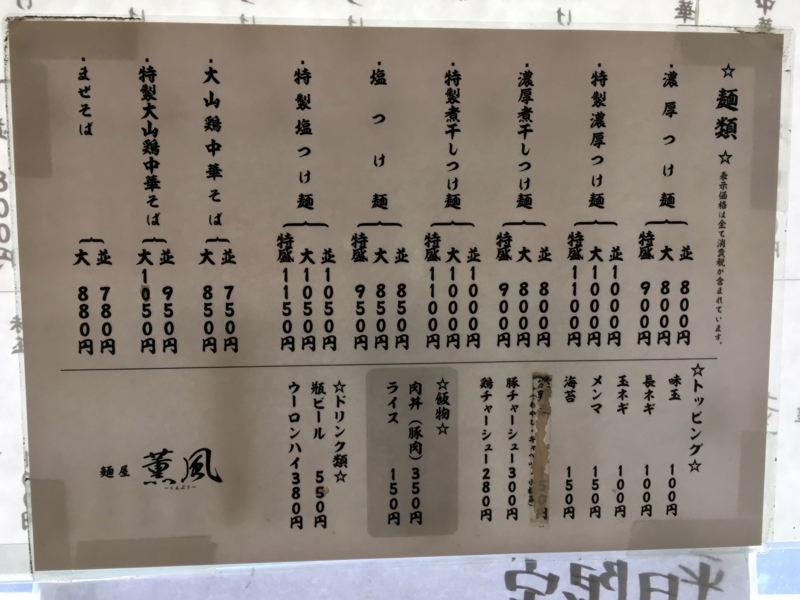 ☆麺類☆
表示価格は全て消費税が含まれています。
・濃厚つけ麺
並 800円
大 800円
特盛 900円
・特製濃厚つけ麺
並 1000円
大 1000円
特盛 1100円
・濃厚煮干しつけ麺
並 800円
大 800円
特盛 900円
・特製煮干しつけ麺
並 1000円
大 1000円
特盛 1100円
・塩つけ麺
並 850円
大 850円
特盛 950円
・特製塩つけ麺
並 1050円
大 1050円
特盛 1150円
・大山鶏中華そば
並 750円
大 850円
・特製大山鶏中華そば
並 950円
大 1050円
・まぜそば
並 780円
大 880円
☆トッピング☆
味玉 100円
長ネギ 100円
玉ネギ 100円
メンマ 150円
海苔 150円
豚チャーシュー300円
鶏チャーシュー280円
☆飯物☆
肉丼（豚肉）350円
ライス 150円
☆ドリンク類☆
瓶ビール 550円
ウーロンハイ380円
麺屋 薫風
～くんぷう～